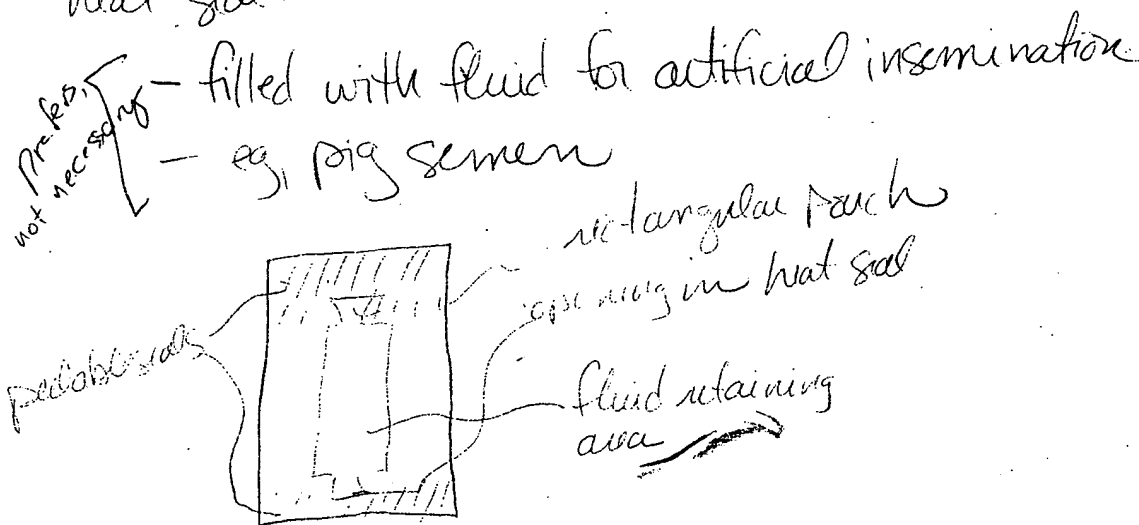 heat seal
prefer,
not necessary
– filled with fluid for artificial insemination
– eg, pig semen
rectangular pouch
opening in heat seal
peelable seals
fluid retaining
area